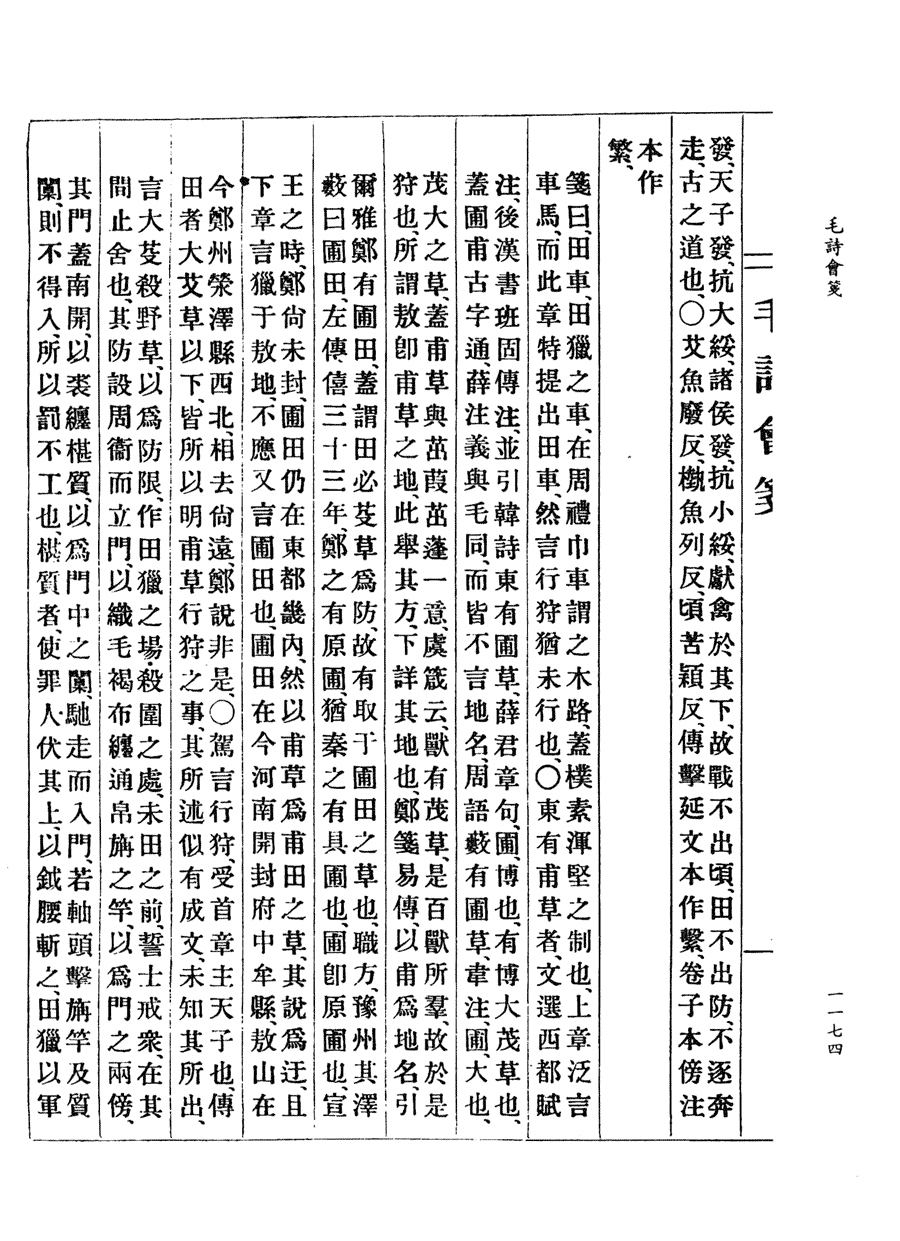 毛詩會箋
一一七四
毛詩會箋
發、天子發、抗大綏、諸侯發、抗小綏、獻禽於其下、故戰不出頃、田不出防、不逐奔
走、古之道也、〇艾魚廢反、槷魚列反、頃苦穎反、傳擊延文本作繫、卷子本傍注
本作
繁、
箋曰、田車、田獵之車、在周禮巾車謂之木路、蓋樸素渾堅之制也、上章泛言
車馬、而此章特提出田車、然言行狩猶未行也、〇東有甫草者、文選西都賦
注、後漢書班固傳注、並引韓詩東有圃草、薛君章句、圃、博也、有博大茂草也、
蓋圃甫古字通、薛注義與毛同、而皆不言地名、周語藪有圃草、韋注、圃、大也、
茂大之草、蓋甫草與茁葭茁蓬一意、虞箴云、獸有茂草、是百獸所羣、故於是
狩也、所謂敖卽甫草之地、此舉其方、下詳其地也、鄭箋易傳、以甫爲地名、引
爾雅鄭有圃田、蓋謂田必芟草爲防、故有取于圃田之草也、職方、豫州其澤
藪曰圃田、左傳、僖三十三年、鄭之有原圃、猶秦之有具圃也、圃卽原圃也、宣
王之時、鄭尙未封、圃田仍在東都畿內、然以甫草爲甫田之草、其說爲迂、且
下章言獵于敖地、不應又言圃田也、圃田在今河南開封府中牟縣、敖山在
今鄭州滎澤縣西北、相去尙遠、鄭說非是、〇駕言行狩、受首章主天子也、傳
田者大艾草以下、皆所以明甫草行狩之事、其所述似有成文、未知其所出、
言大芟殺野草、以爲防限、作田獵之場、殺圍之處、未田之前、誓士戒衆、在其
間止舍也、其防設周衞而立門、以織毛褐布纏通帛旃之竿、以爲門之兩傍、
其門蓋南開、以裘纏椹質、以爲門中之闑、馳走而入門、若軸頭擊旃竿及質
闑、則不得入、所以罰不工也、椹質者、使罪人伏其上、以鉞腰斬之、田獵以軍